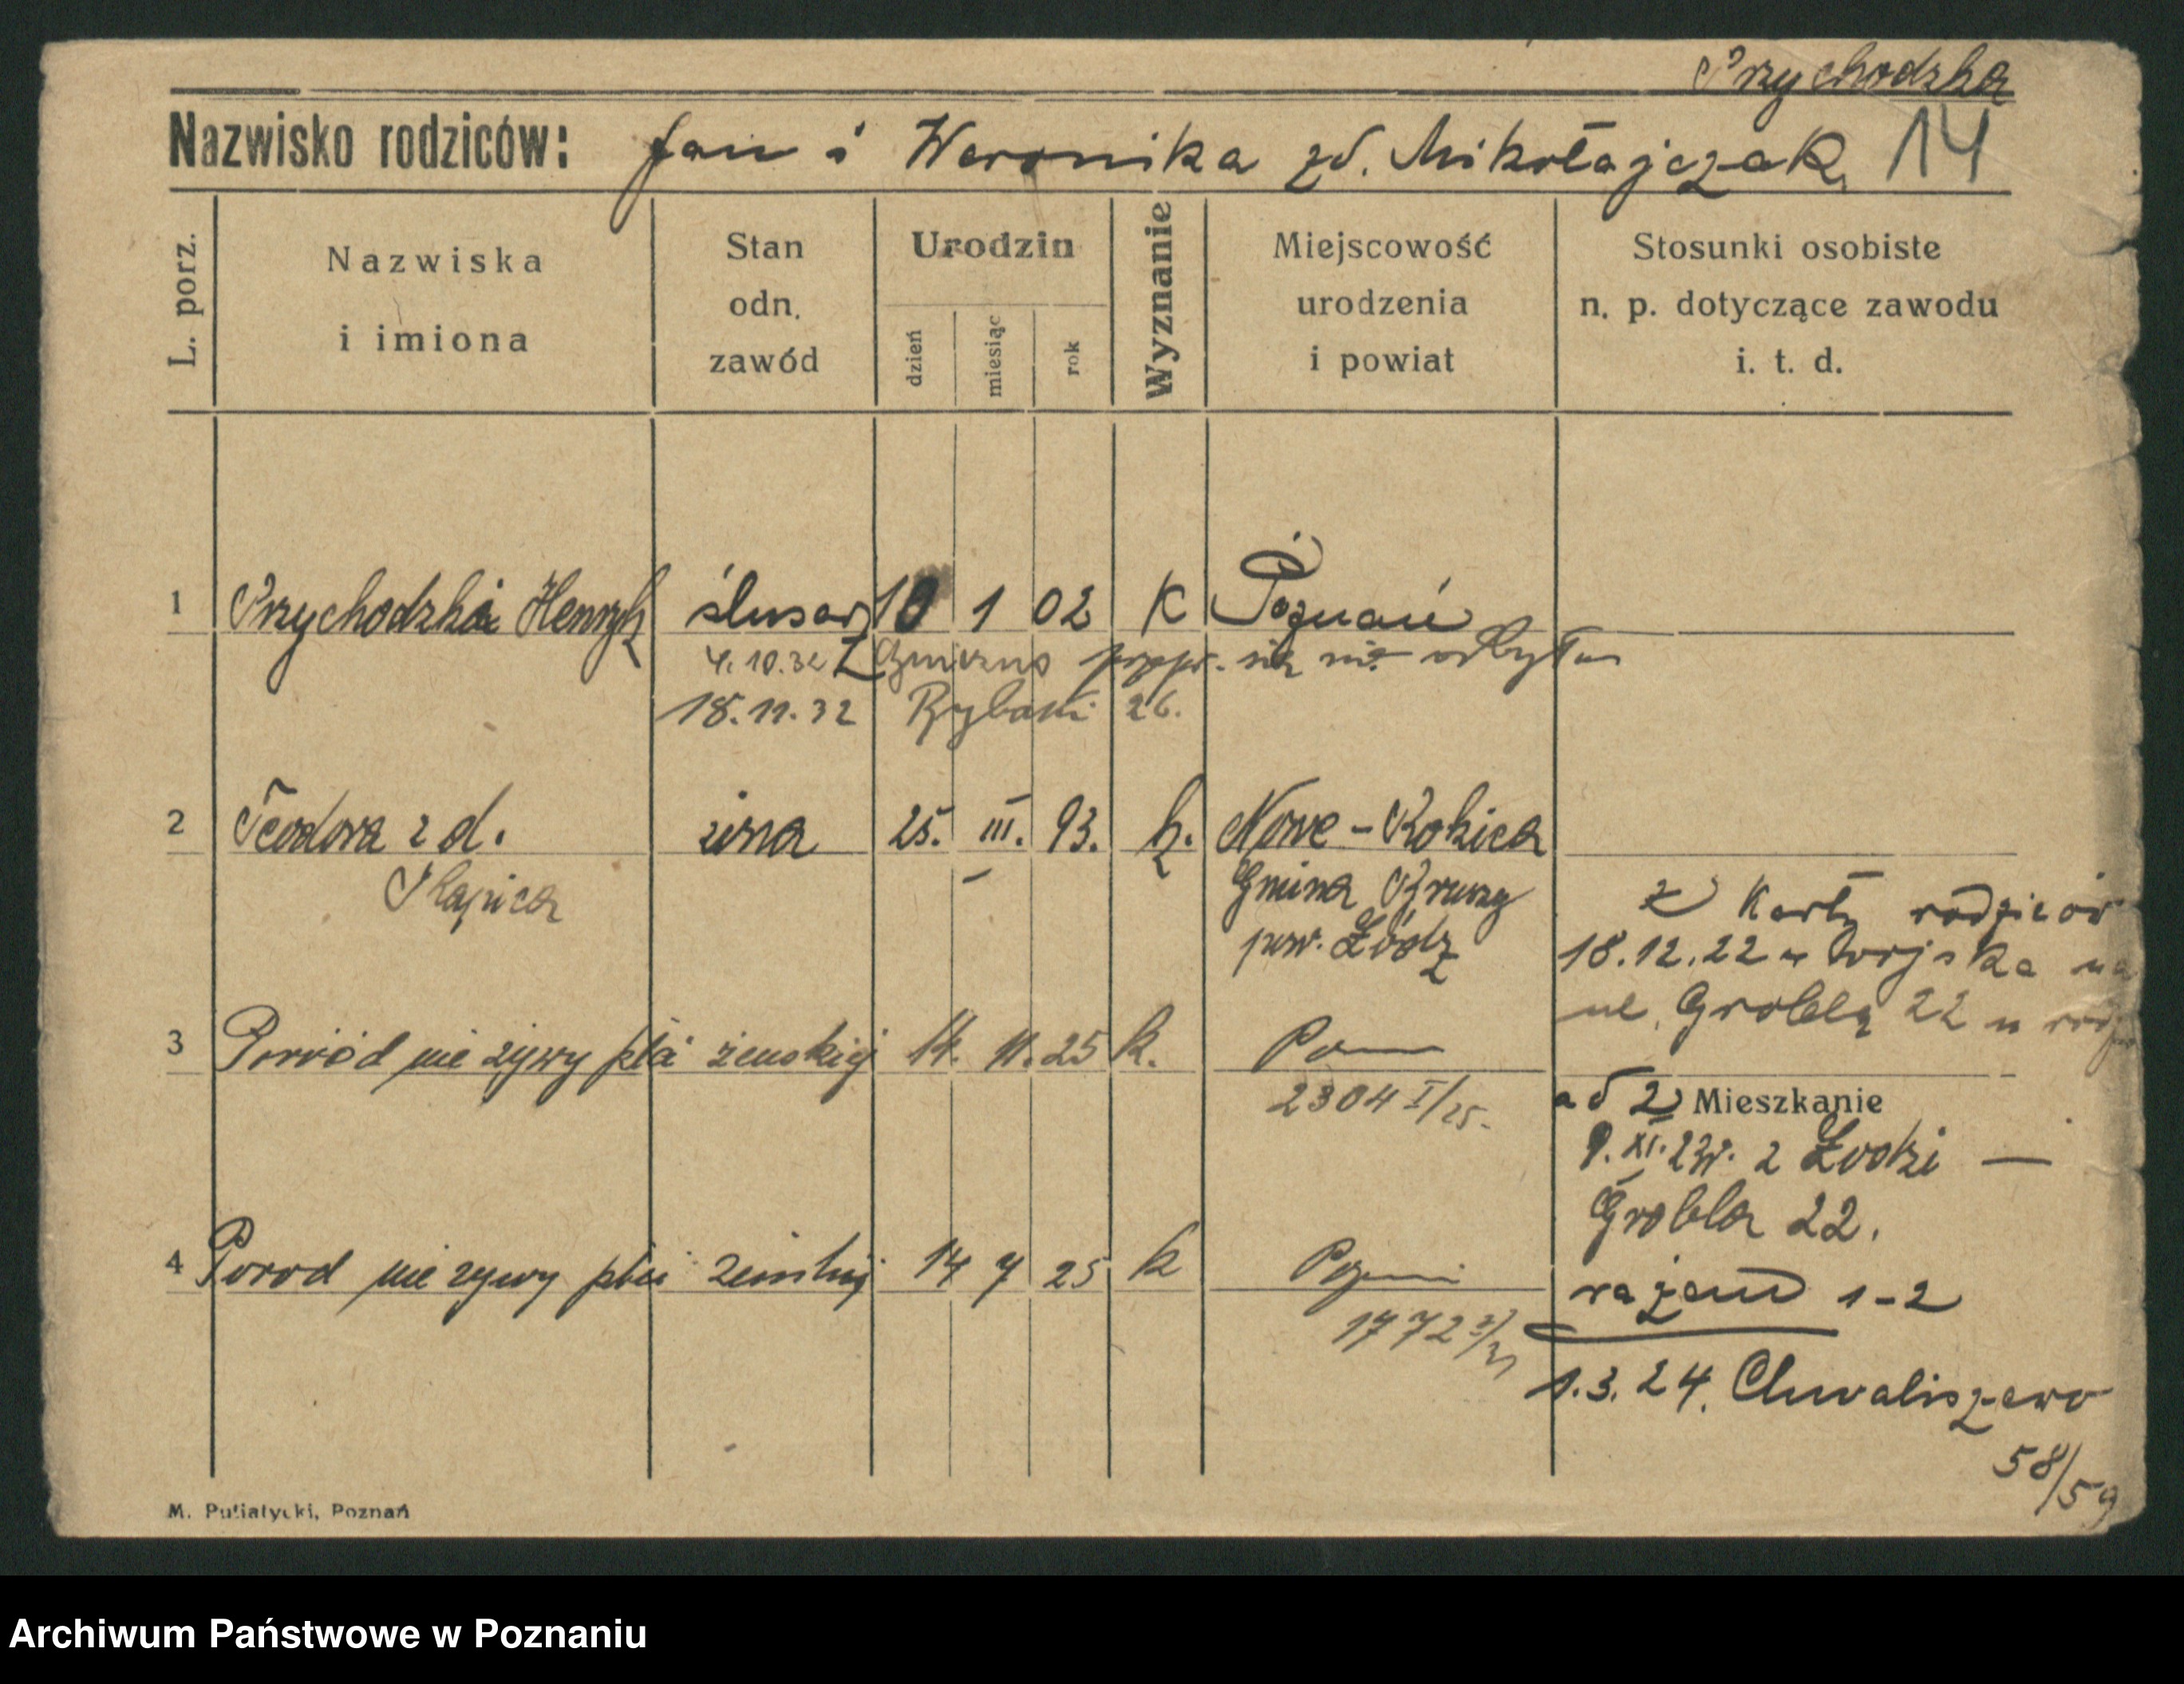 Przychodzka
Nazwisko rodziców: Jan i Weronika zd. Mikołajczak 14
L. porz.
Nazwiska i imiona
Stan odn. zawód
Urodzin
dzień miesiąc rok
Wyznanie
Miejscowość urodzenia i powiat
Stosunki osobiste n. p. dotyczące zawodu i. t. d.
1 Przychodzka Henryk ślusarz 10 1 02 K Poznań
4.10.32 Gniezno przepr. się nie odbyła
18.11.32 Rybaki 26.
2 Teodora z d. żona 25. III. 93. k. Nowe-Rokicie
Gmina Bruszy
pow. Łódz
z Karty rodziców
18.12.22 z wojska na
ul. Grobla 22 u rodz
3 Poród nie żywy płci żeńskiej 14. 11. 25 k.
2304 I/25.
ad 2) Mieszkanie
9. XI. 23r. z Łodzi —
Grobla 22.
4 Porod nie zywy płci żeńskiej 14 7 25 k Poznań
1772
razem 1-2
1.3.24. Chwaliszewo
58/59
M. Putiatycki, Poznań
Archiwum Państwowe w Poznaniu